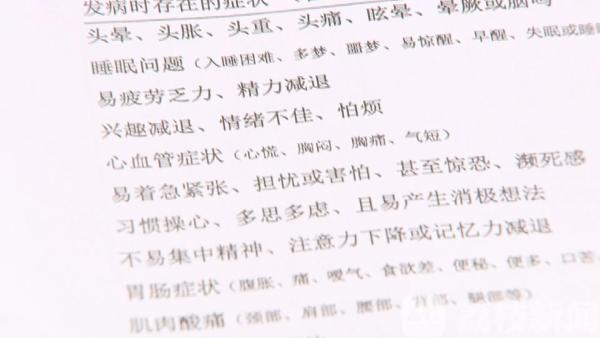 发病时存在的症状（
头晕、头胀、头重、头痛、眩晕、晕厥或脑鸣
睡眠问题（入睡困难、多梦、噩梦、易惊醒、早醒、失眠或睡眠
易疲劳乏力、精力减退
兴趣减退、情绪不佳、怕烦
心血管症状（心慌、胸闷、胸痛、气短）
易着急紧张、担忧或害怕、甚至惊恐、濒死感
习惯操心、多思多虑、且易产生消极想法
不易集中精神、注意力下降或记忆力减退
胃肠症状（腹胀、痛、嗳气、食欲差、便秘、便多、口苦、
肌肉酸痛（颈部、肩部、腰部、背部、腿部等）
荔枝新闻